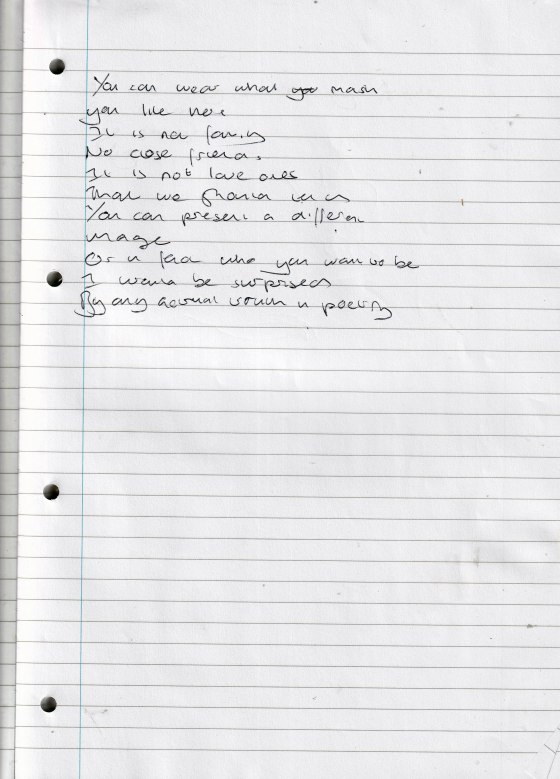 You can wear what you mask
you like here
It is not family
No close friends
It is not love ones
That we share with
You can present a different
image
Or in fact who you want to be
I would be surprised
By any actual truth in poetry